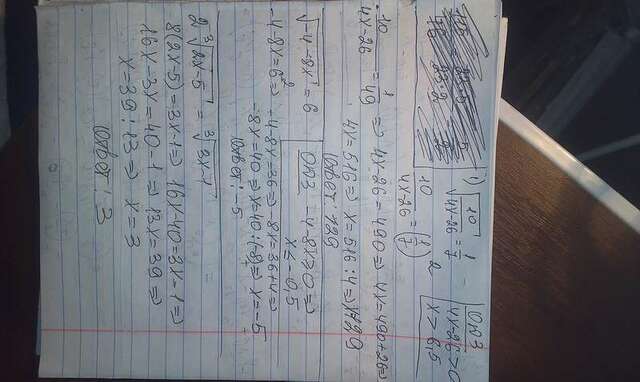 1) √10/(4x-26) = 1/7
ОДЗ
4x-26>0
x > 6,5
10/(4x-26) = (1/7)²
10/(4x-26) = 1/49 => 4x-26=490 => 4x=490+26=>
4x=516=> x=516:4=> x=129
Ответ: 129
√-4-8x = 6
ОДЗ -4-8x>0=>
x<-0,5
-4-8x=6² => -4-8x=36=> -8x=36+4=>
-8x=40=>x=40:(-8)=> x=-5
Ответ: -5
2·³√2x-5 = ³√3x-1
8(2x-5)=3x-1=> 16x-40=3x-1=>
16x-3x=40-1=> 13x=39=>
x=39:13=> x=3
Ответ: 3